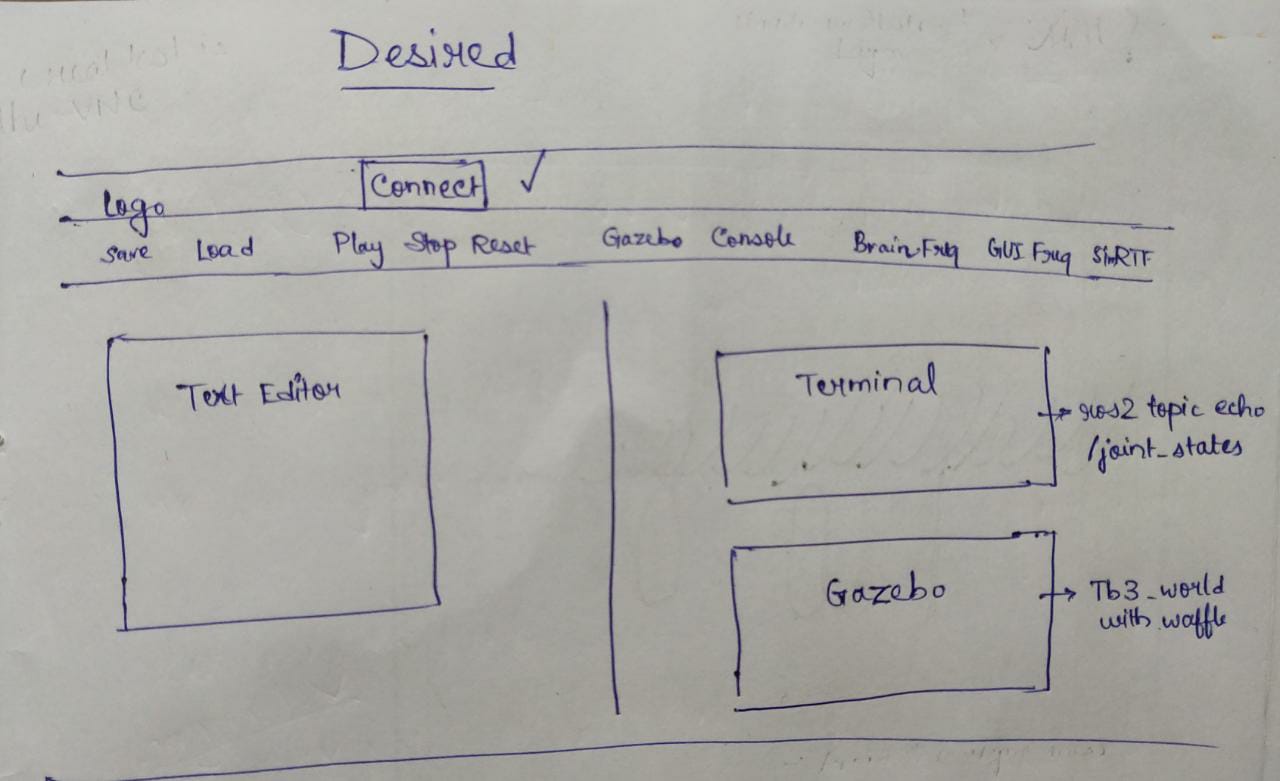 Desired
Logo Connect ✓
Save Load Play Stop Reset Gazebo Console Brain Freq GUI Freq SimRTF
Text Editor
Terminal
→ ros2 topic echo
/joint_states
Gazebo
→ Tb3_world
with waffle